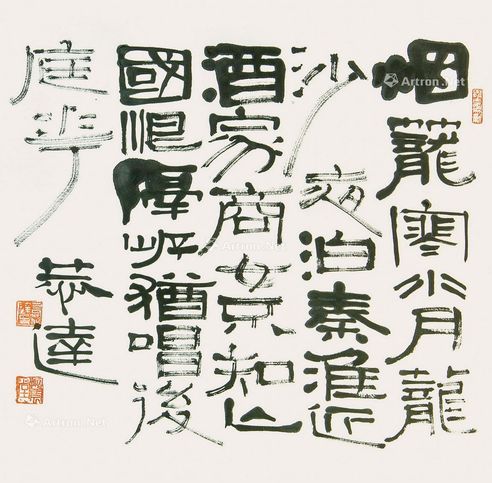 烟籠寒水月籠
沙夜泊秦淮近
酒家商女不知亡
國恨隔江猶唱後
庭花
恭達
Artron.Net
Artron.Net
Artron.Net